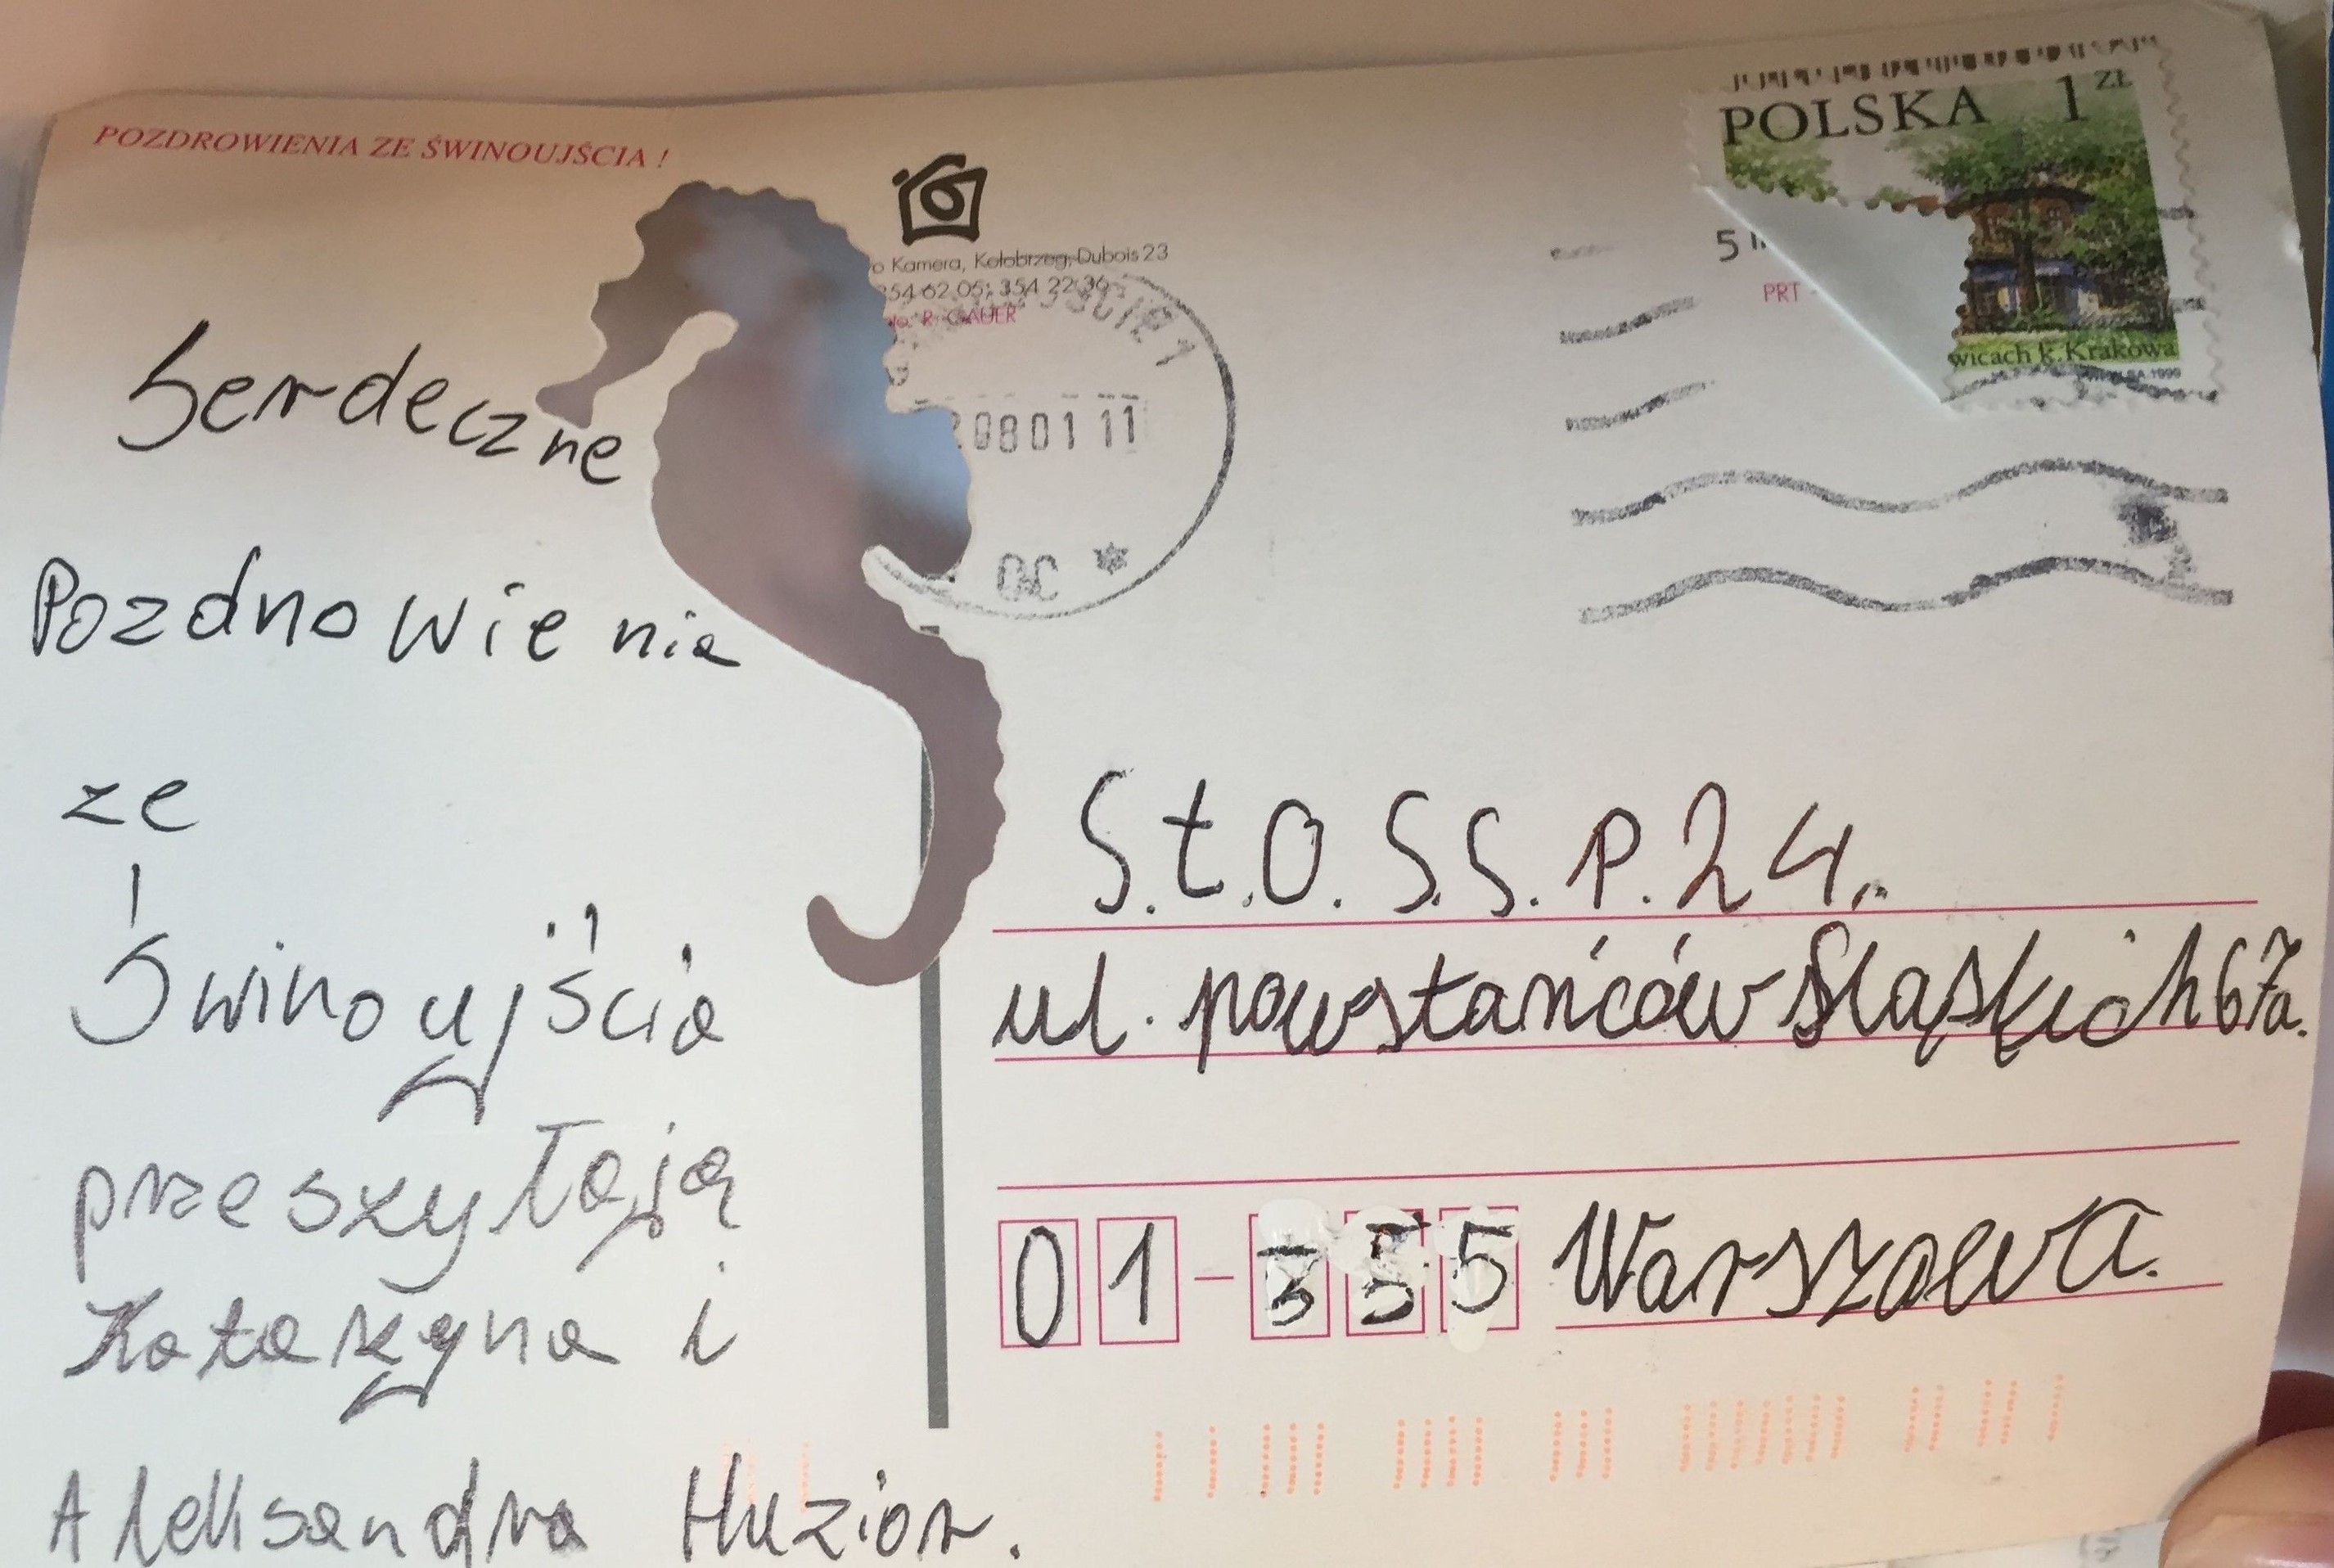 POZDROWIENIA ZE ŚWINOUJŚCIA !
Kamera, Kołobrzeg, Dubois 23
354 62 05; 354 22 36
R. GAUER
0801 11
POLSKA 1 ZŁ
wicach k. Krakowa
1999
5
PRT
Serdeczne
Pozdrowienia
ze
Świnoujścia
przeszyłają
Katarzyna i
Aleksandra Huzior.
S.t.O. S.S. P. 24.
ul. powstańców Śląskich 67a.
01-355 Warszawa.